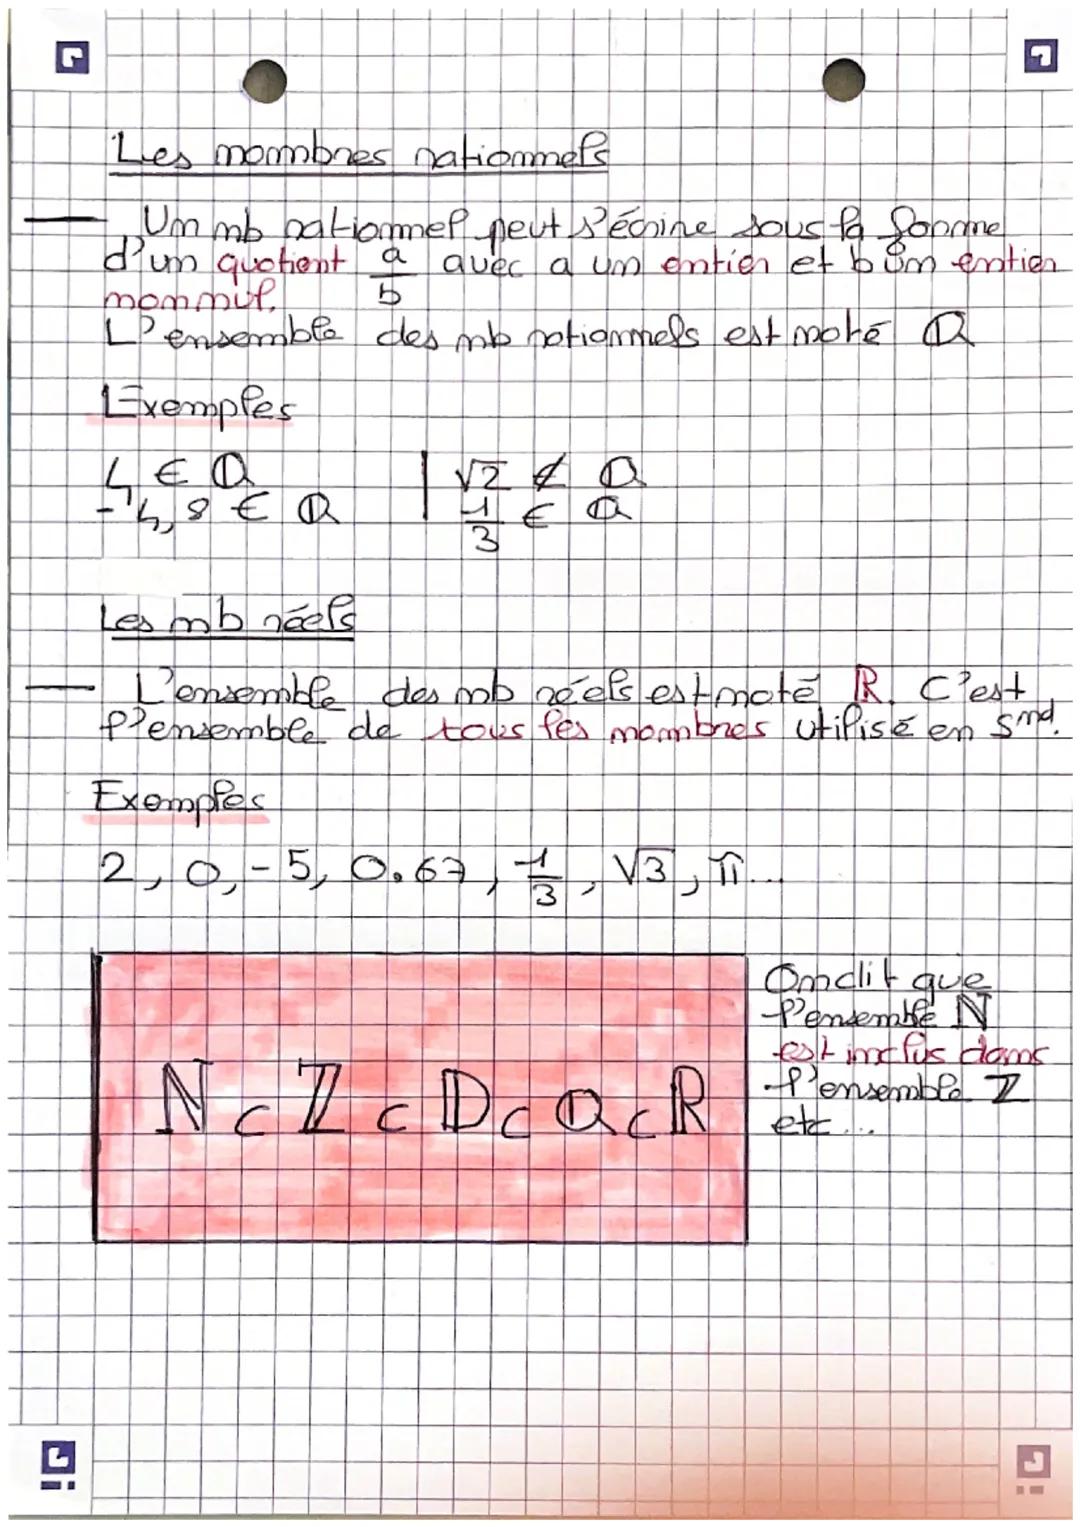 Les nombres rationnels
Un nb rationnel peut s'écrire sous la forme
d'un quotient a/b avec a un entier et b un entier
non nul.
L'ensemble des nb rationnels est noté ℚ
Exemples
4 ∈ ℚ | √2 ∉ ℚ
-4,8 ∈ ℚ | 1/3 ∈ ℚ
Les nb réels
L'ensemble des nb réels est noté ℝ. C'est
l'ensemble de tous les nombres utilisé en 2nd.
Exemples
2, 0, -5, 0.67, 1/3, √3, π...
ℕ ⊂ ℤ ⊂ 𝔻 ⊂ ℚ ⊂ ℝ
On dit que
l'ensemble ℕ
est inclus dans
l'ensemble ℤ
etc...